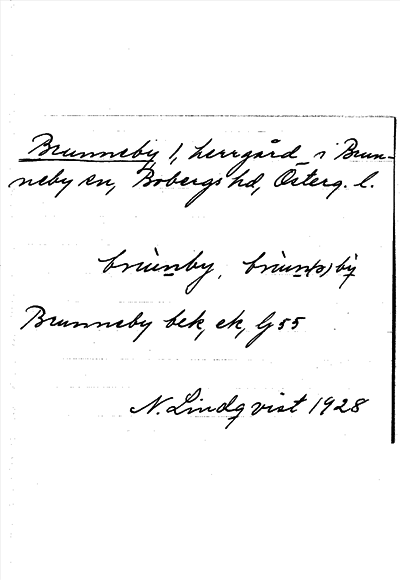 Brunneby 1, herrgård i Brun-
neby sn, Bobergs hd, Österg. l.
brùnby, brùn(ə)by
Brunneby bek, ek, Lj 55
N. Lindqvist 1928